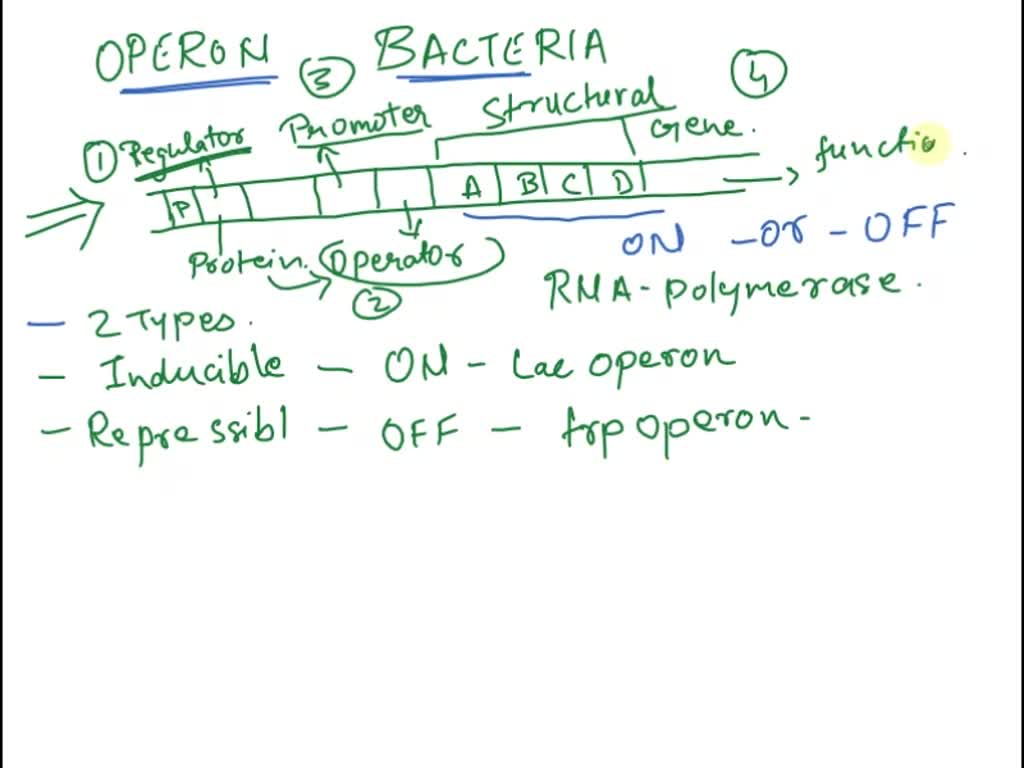 OPERON BACTERIA
③ ④
① Regulator Promoter Structural Gene.
P A B C D functio.
Protein. Operator ON - or - OFF
② RNA - polymerase.
- 2 Types.
- Inducible - ON - Lac operon
- Repressibl - OFF - trp operon -